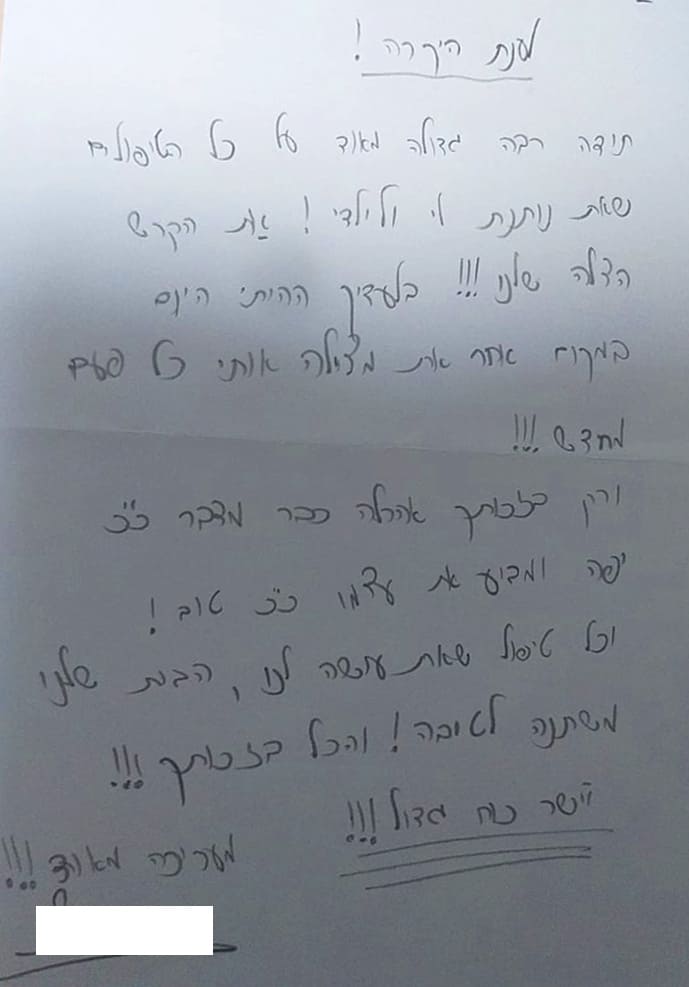 לענת היקרה!
תודה רבה גדולה מאוד על כל הטיפולים
שאת נותנת לי ולילדי! את הקרש
הצלה שלנו!!! בלעדיך ההיתי היום
במקום אחר את מצילה אותי כל פעם
מחדש!!!
ורק בזכותך אהרלה כבר מדבר כ"כ
יפה ומביע את עצמו כ"כ טוב!
וכל טיפול שאת עושה לנו, הבית שלנו
משתנה לטובה! והכל בזכותך!!!
יישר כוח גדול!!!
מעריכה מאוד!!!